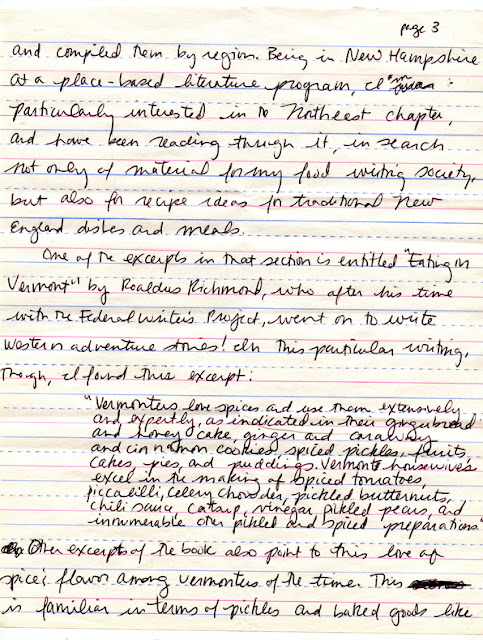 page 3
and compiled them by region. Being in New Hampshire
at a place-based literature program, I'm
particularly interested in the Northeast chapter,
and have been reading through it, in search
not only of material for my food writing society,
but also for recipe ideas for traditional New
England dishes and meals.
One of the excerpts in that section is entitled "Eating in
Vermont" by Roaldus Richmond, who after his time
with the Federal Writer's Project, went on to write
western adventure stories! In this particular writing,
though, I found this excerpt:
"Vermonters love spices and use them extensively
and expertly, as indicated in their gingerbread
and honey cake, ginger and caraway
and cinnamon cookies, spiced pickles, fruits,
cakes, pies, and puddings. Vermont housewives
excel in the making of spiced tomatoes,
piccalilli, celery chowder, pickled butternuts,
chili sauce, catsup, vinegar pickled pears, and
innumerable other pickled and spiced preparations."
Other excerpts of the book also point to this love of
spice: flavor among vermonters of the time. This
is familiar in terms of pickles and baked goods like